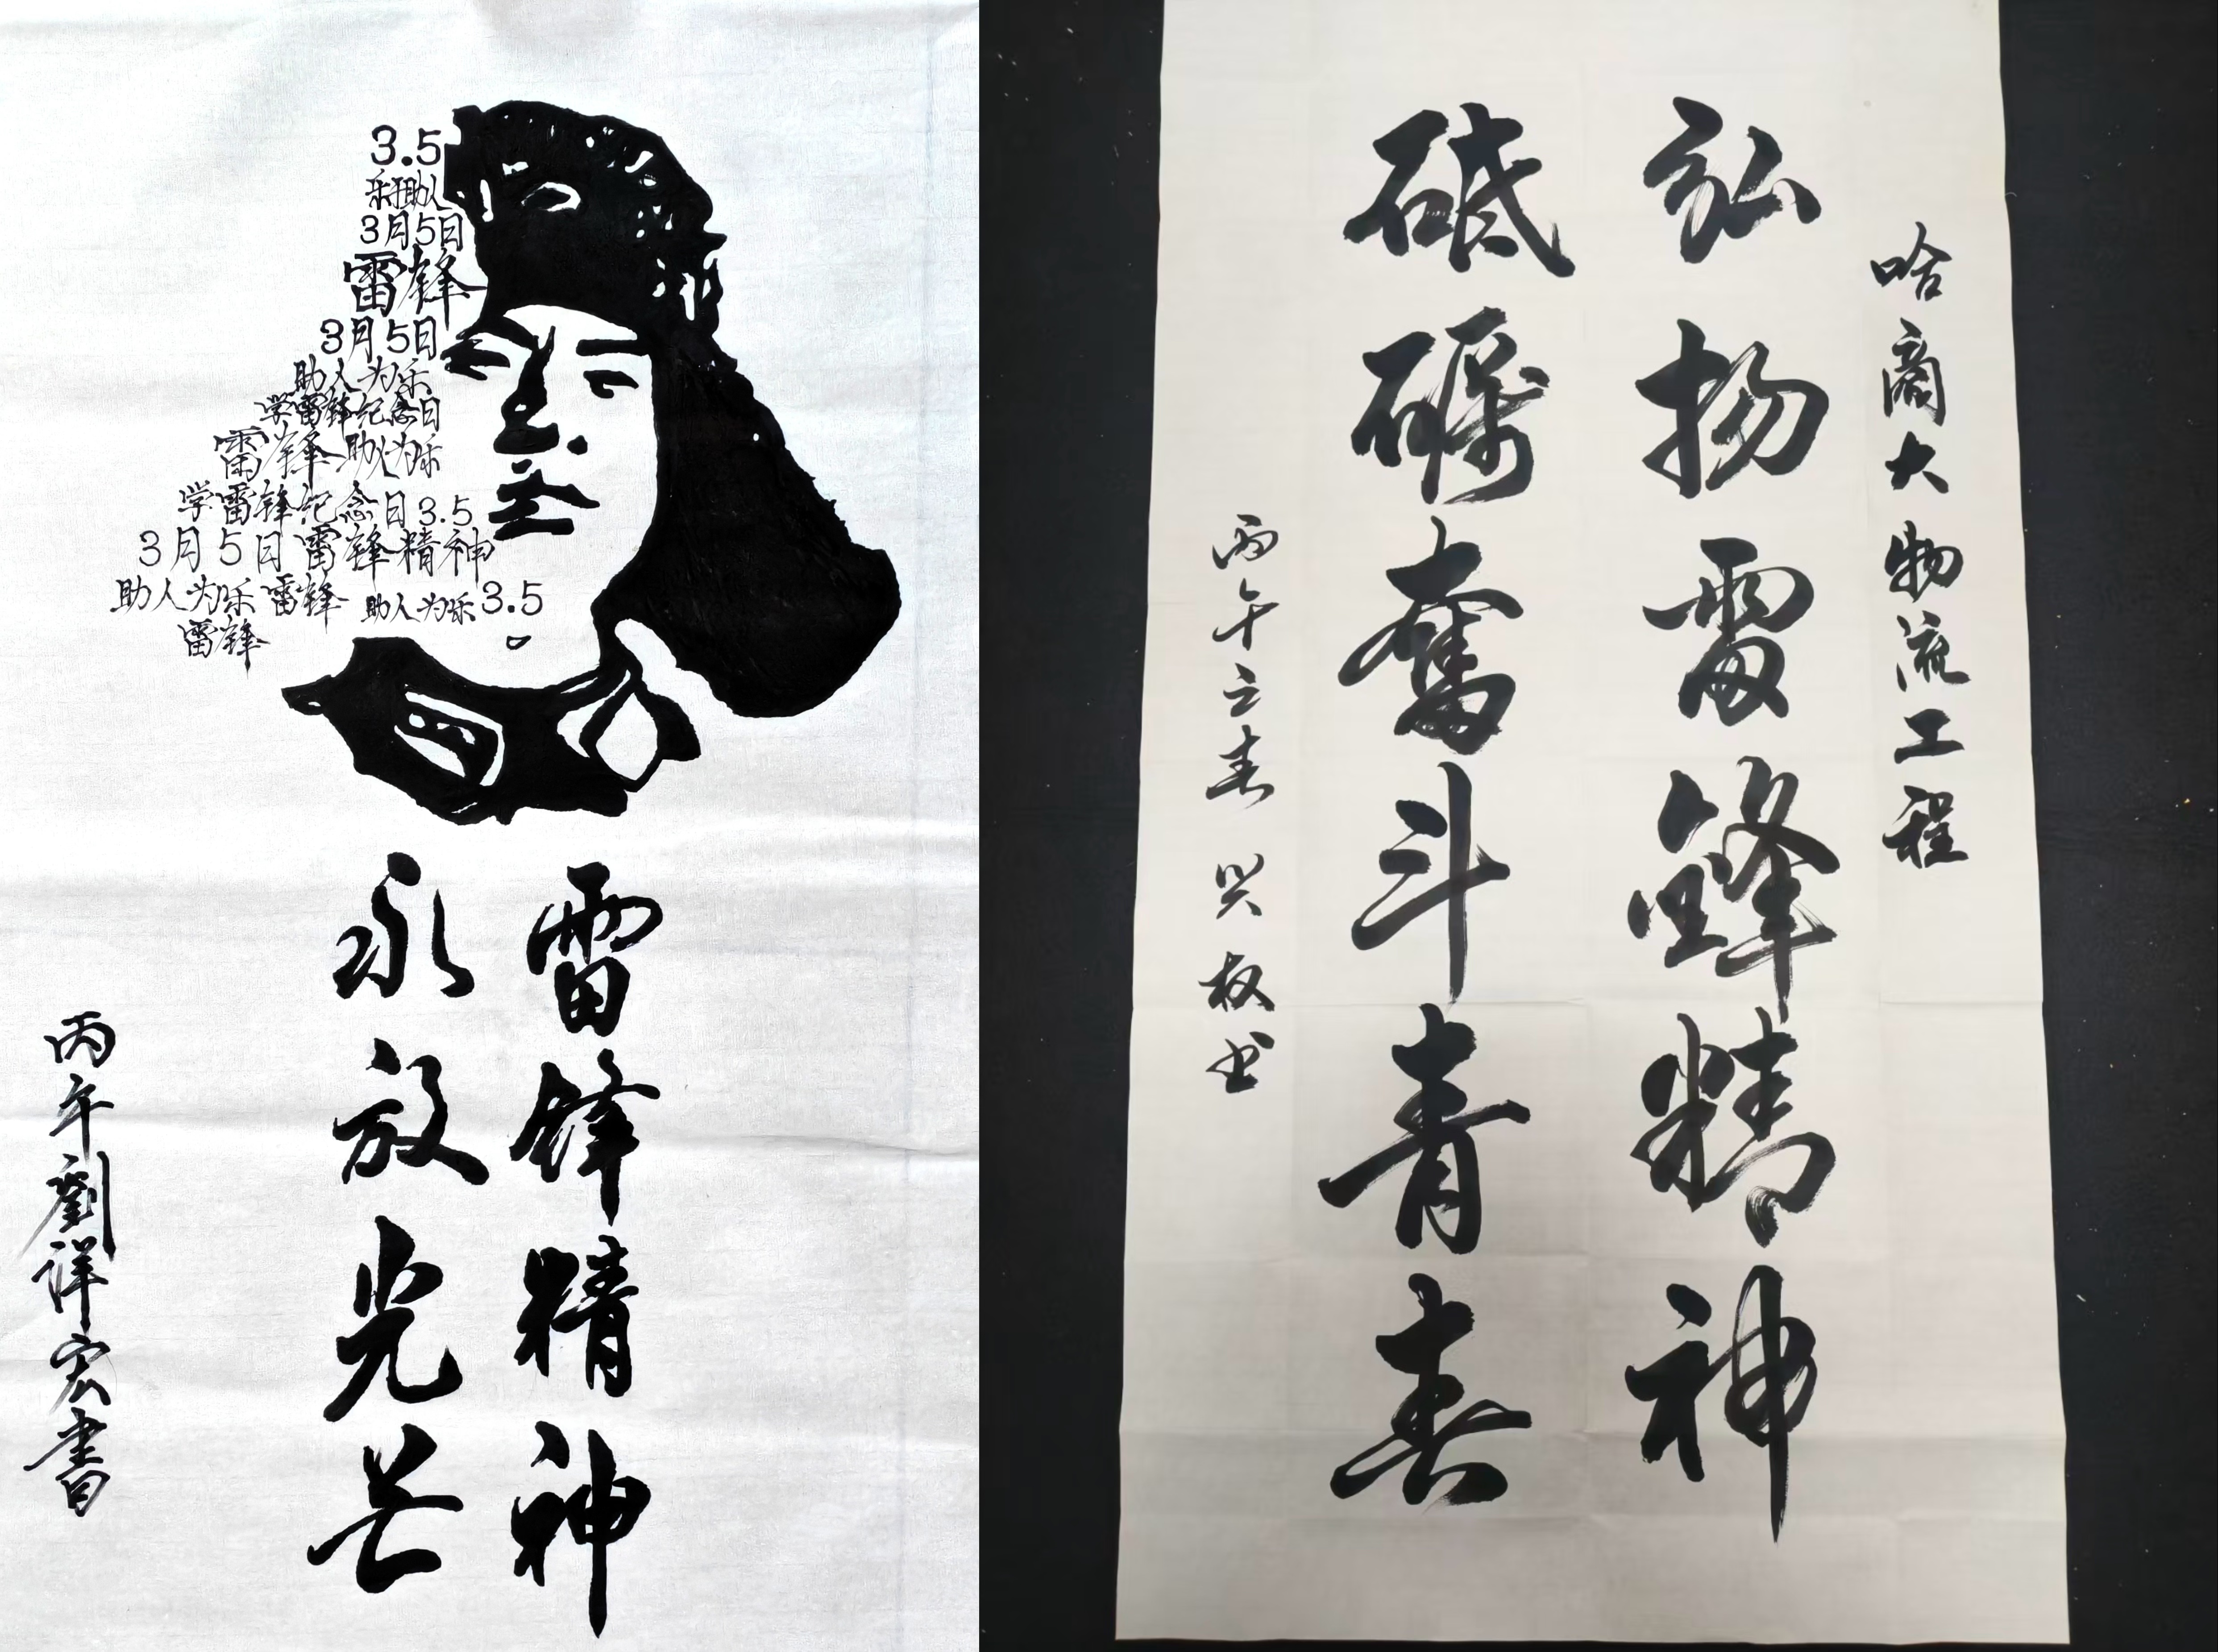 3.5
乐于助人
3月5日
雷锋
3月5日
助人为乐
学雷锋纪念日
雷锋 助人为乐
学雷锋纪念日3.5
3月5日雷锋精神
助人为乐雷锋 助人为乐3.5
雷锋
雷锋精神
永放光芒
丙午劉祥宏書
哈商大物流工程
弘扬雷锋精神
砥砺奮斗青春
丙午立春 兴权书